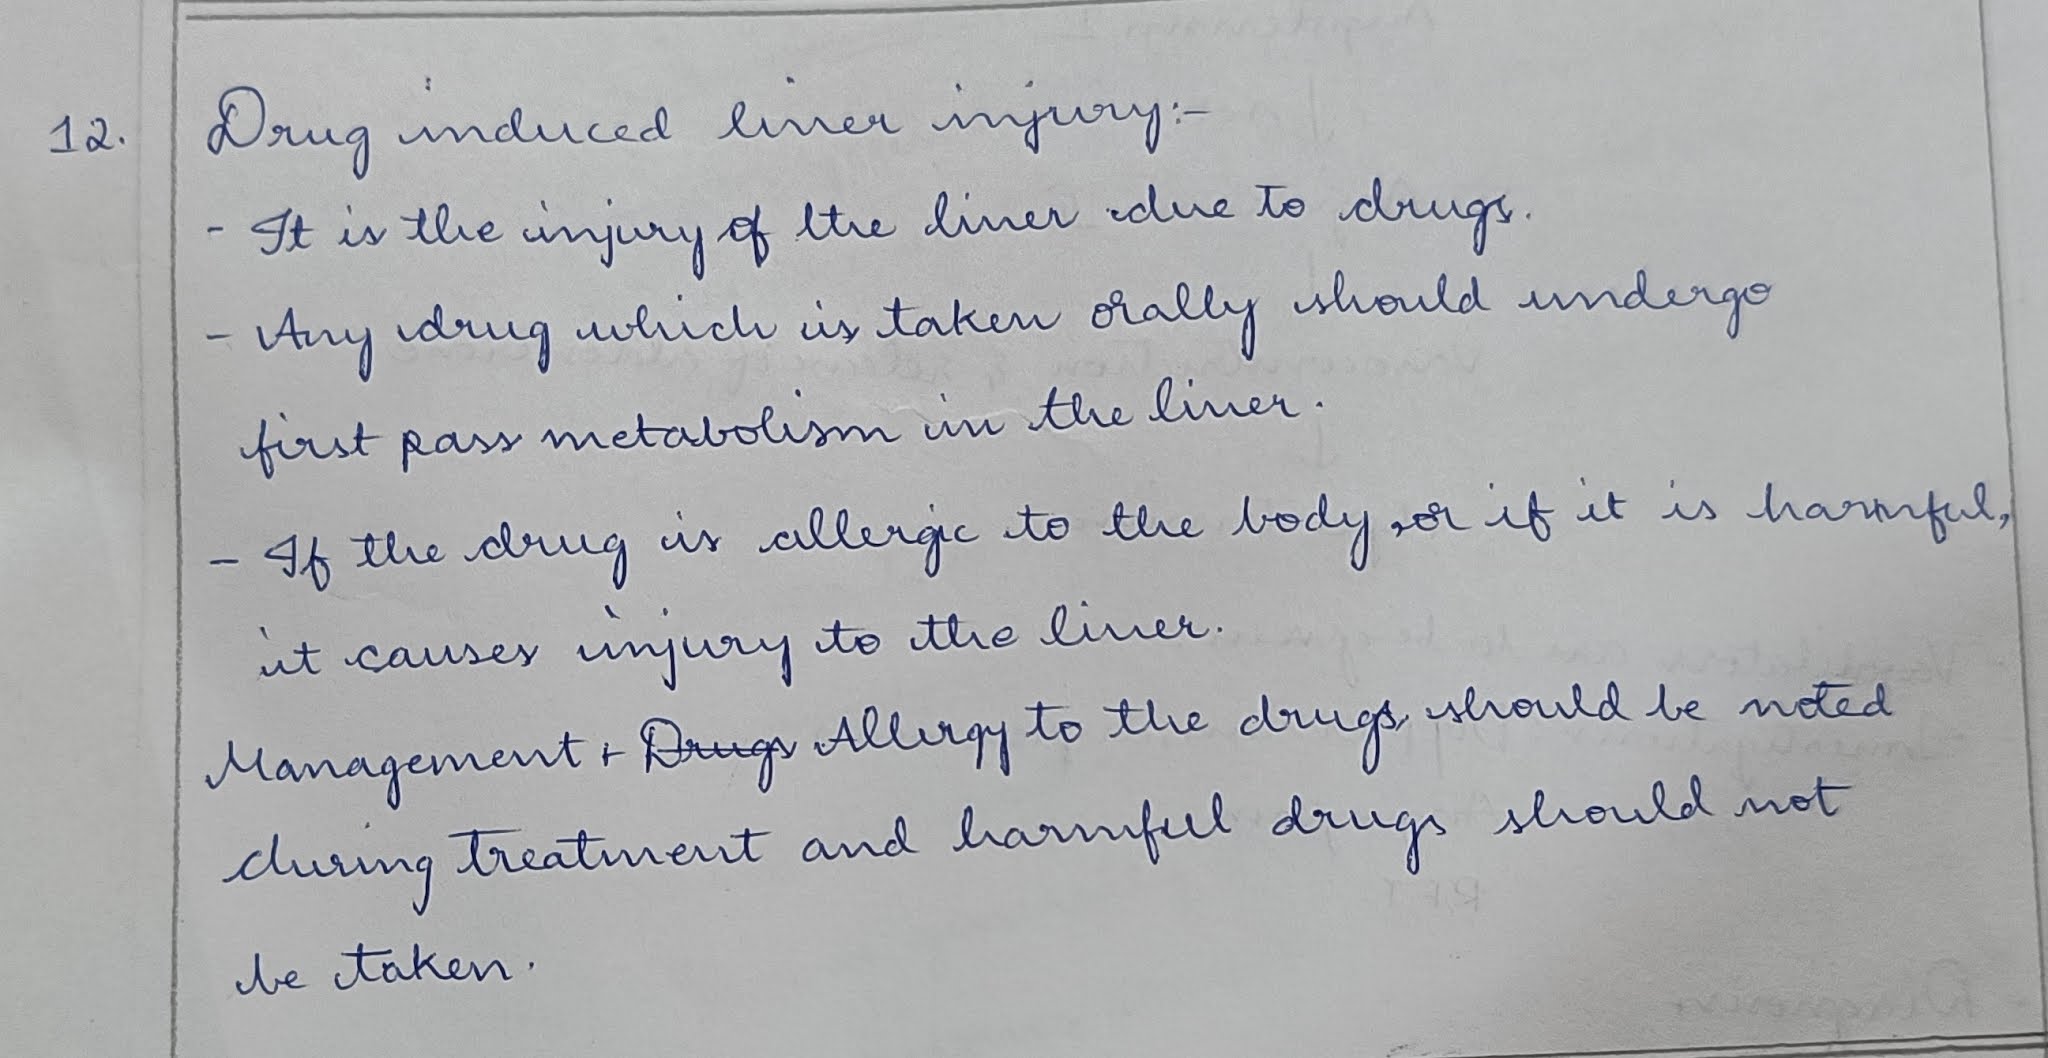 12. Drug induced liver injury:-
- It is the injury of the liver due to drugs.
- Any drug which is taken orally should undergo
first pass metabolism in the liver.
- If the drug is allergic to the body, or if it is harmful,
it causes injury to the liver.
Management + Drugs Allergy to the drugs should be noted
during treatment and harmful drugs should not
be taken.